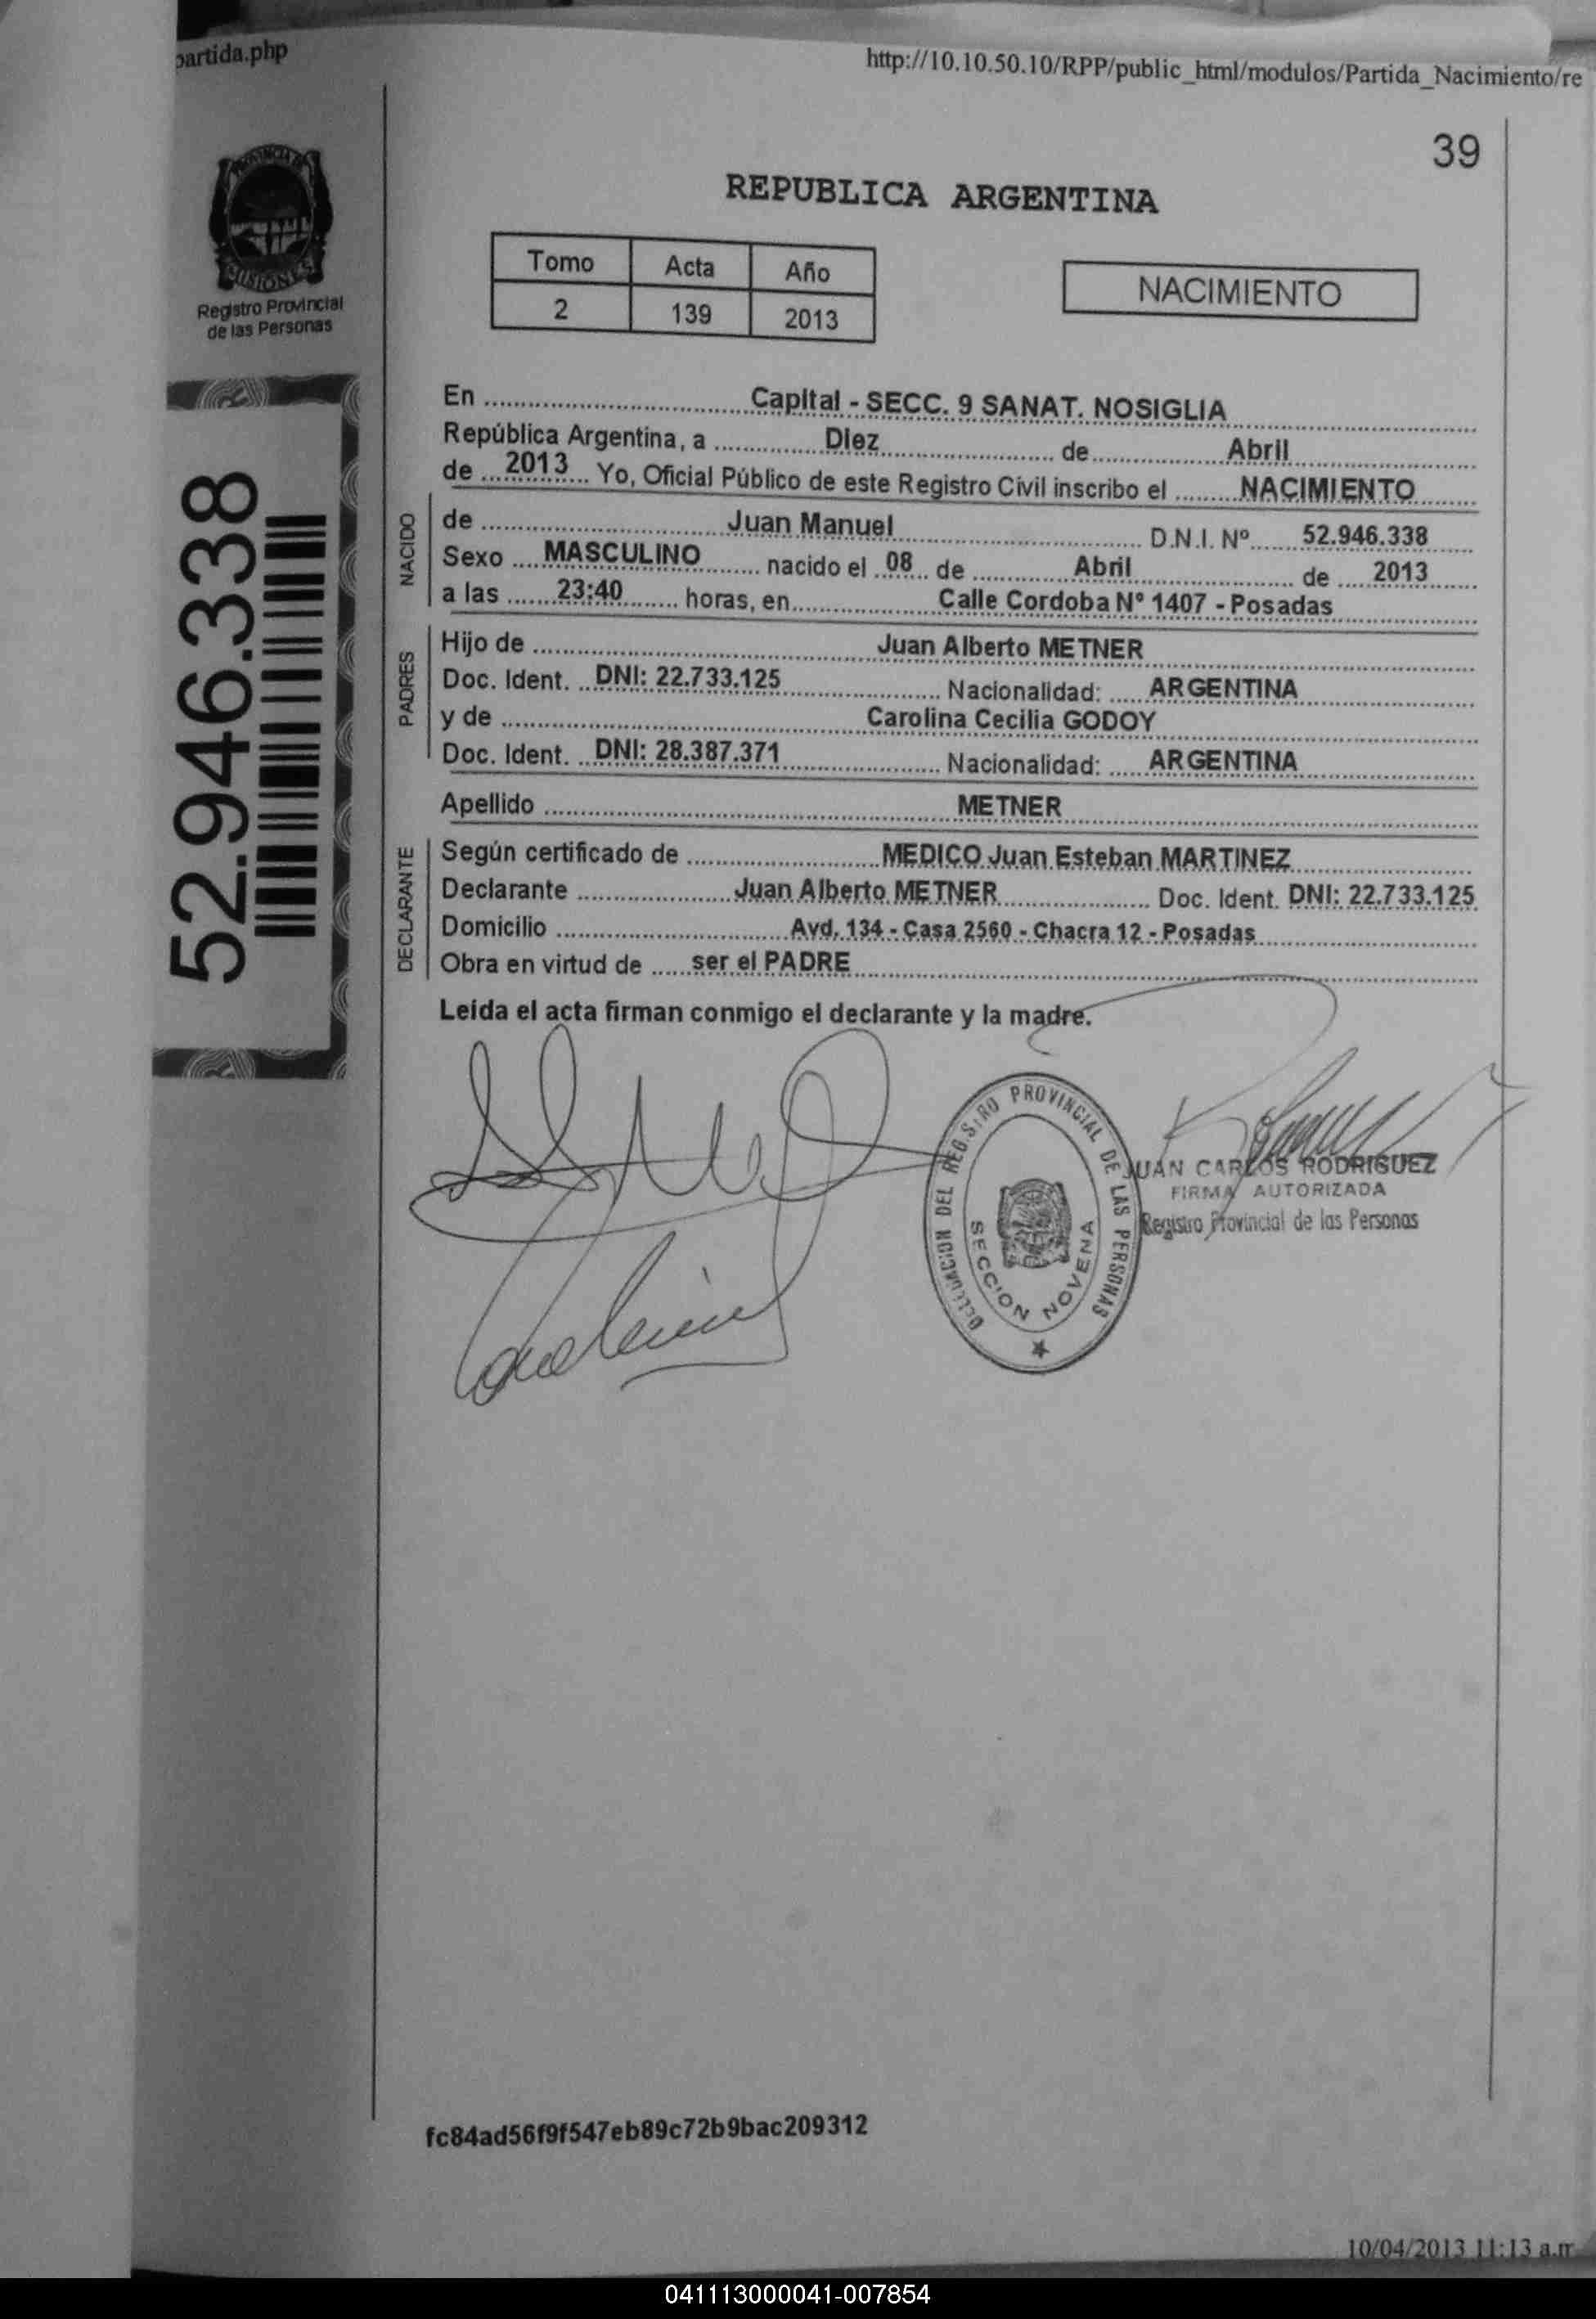 partida.php
http://10.10.50.10/RPP/public_html/modulos/Partida_Nacimiento/re
39
PROVINCIA DE
MISIONES
Registro Provincial
de las Personas
52.946.338
REPUBLICA ARGENTINA
Tomo Acta Año
2 139 2013
NACIMIENTO
En Capital - SECC. 9 SANAT. NOSIGLIA
República Argentina, a Diez de Abril
de 2013 Yo, Oficial Público de este Registro Civil inscribo el NACIMIENTO
NACIDO
de Juan Manuel D.N.I. Nº 52.946.338
Sexo MASCULINO nacido el 08 de Abril de 2013
a las 23:40 horas, en Calle Cordoba Nº 1407 - Posadas
PADRES
Hijo de Juan Alberto METNER
Doc. Ident. DNI: 22.733.125 Nacionalidad: ARGENTINA
y de Carolina Cecilia GODOY
Doc. Ident. DNI: 28.387.371 Nacionalidad: ARGENTINA
Apellido METNER
DECLARANTE
Según certificado de MEDICO Juan Esteban MARTINEZ
Declarante Juan Alberto METNER Doc. Ident. DNI: 22.733.125
Domicilio Avd. 134 - Casa 2560 - Chacra 12 - Posadas
Obra en virtud de ser el PADRE
Leida el acta firman conmigo el declarante y la madre.
DELEGACION DEL REGISTRO PROVINCIAL DE LAS PERSONAS
SECCION NOVENA
JUAN CARLOS RODRIGUEZ
FIRMA AUTORIZADA
Registro Provincial de las Personas
fc84ad56f9f547eb89c72b9bac209312
10/04/2013 11:13 a.m
041113000041-007854